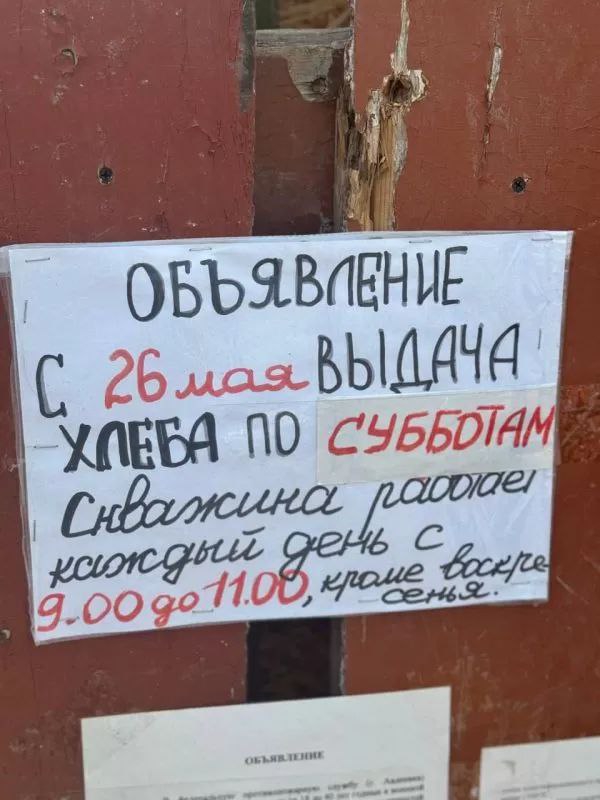 ОБЪЯВЛЕНИЕ
С 26 мая ВЫДАЧА
ХЛЕБА ПО СУББОТАМ
Скважина работает
каждый день с
9.00 до 11.00, кроме воскре-
сенья.
ОБЪЯВЛЕНИЕ